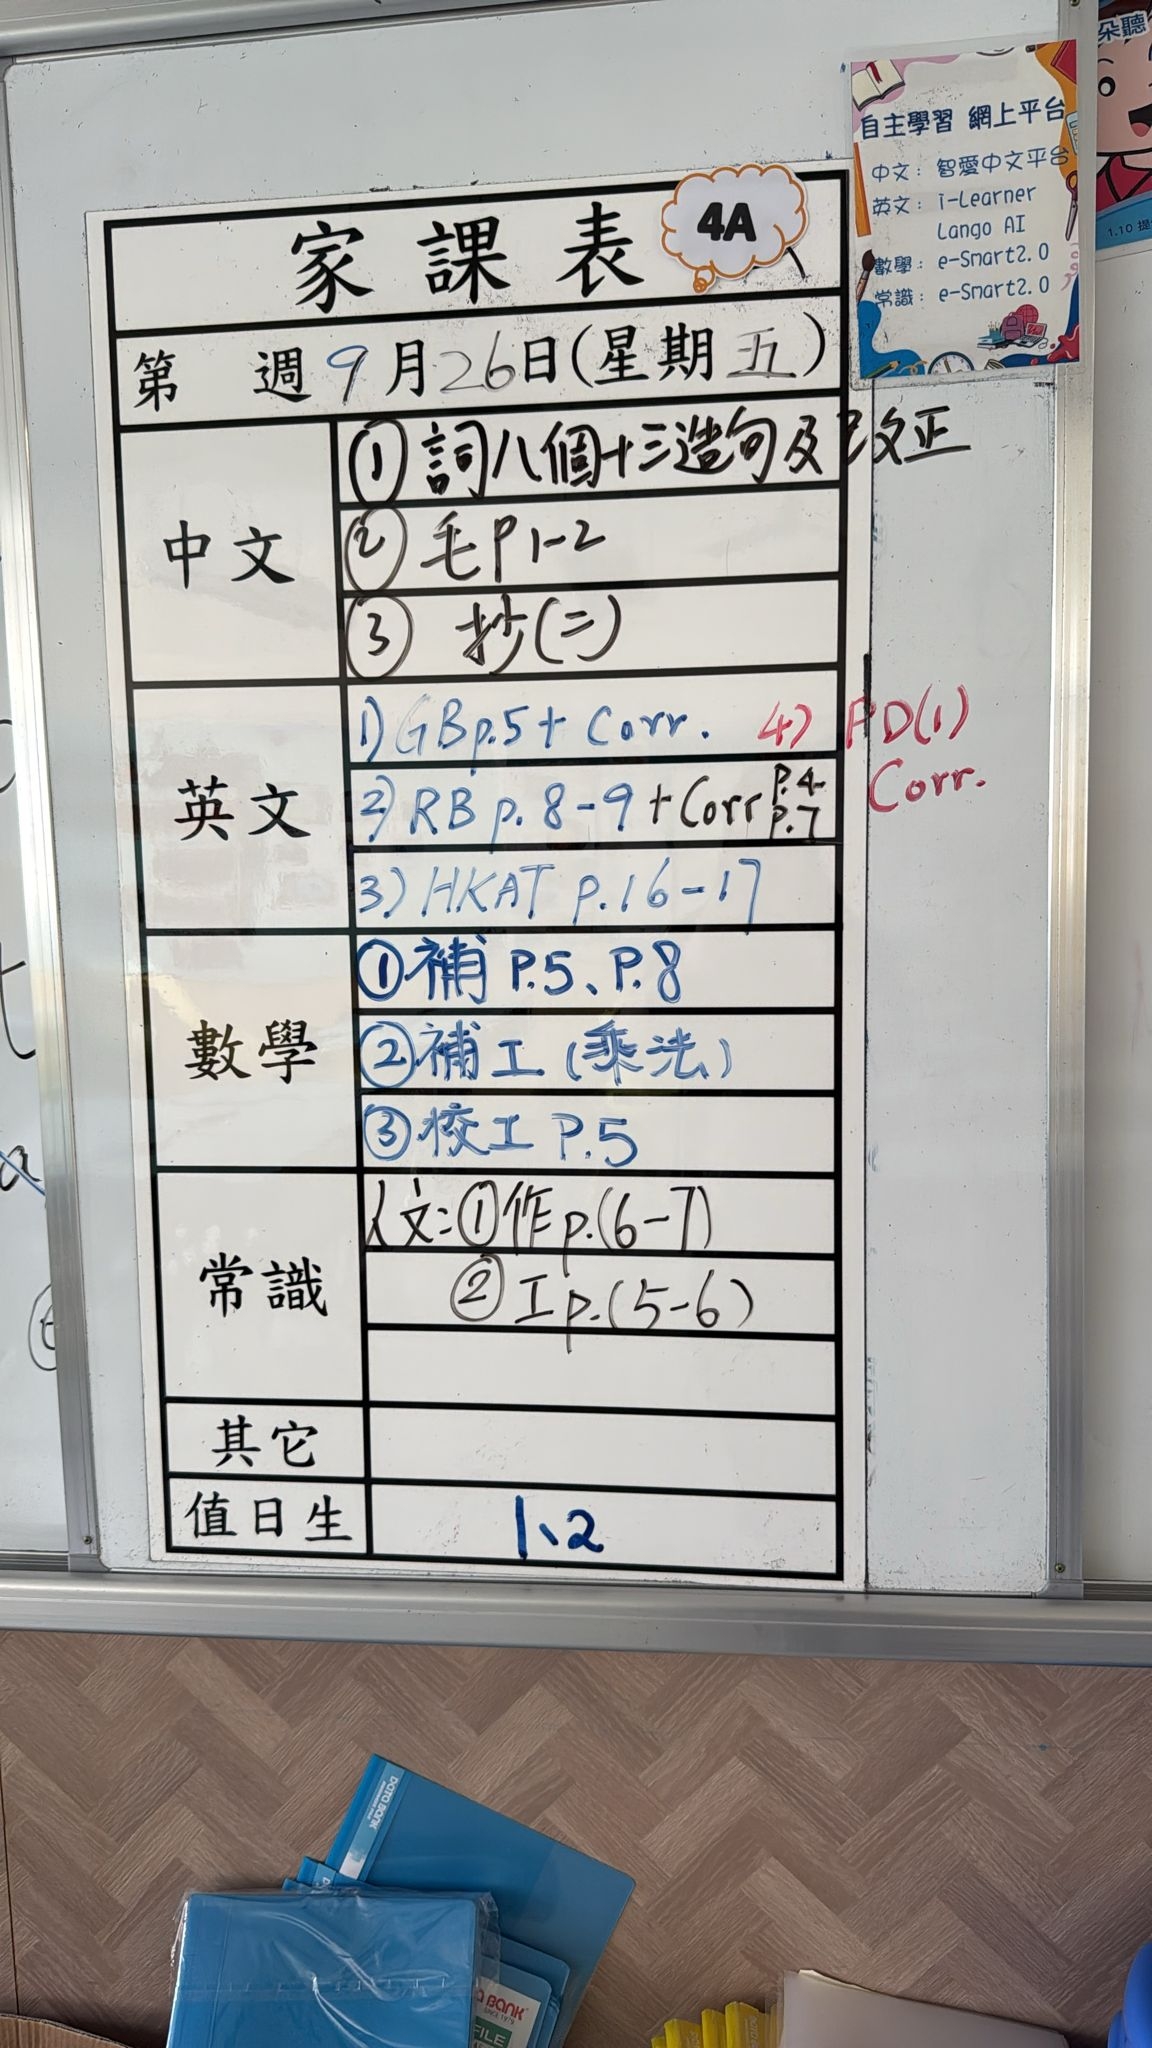 家課表
4A
第 週 9月26日(星期五)
中文
① 詞八個十三造句及改正
② 毛P1-2
③ 抄(二)
英文
1) GB p.5 + Corr.
4) PD(1) Corr.
2) RB p.8-9 + Corr P.4 P.7
3) HKAT p.16-17
數學
① 補 P.5、P.8
② 補工(乘法)
③ 校工 P.5
常識
人文:①作p.(6-7)
②工p.(5-6)
其它
值日生
1、2
自主學習 網上平台
中文: 智愛中文平台
英文: i-Learner
Lango AI
數學: e-Smart2.0
常識: e-Smart2.0
朵聽
1.10
DATA BANK
BANK
FILE